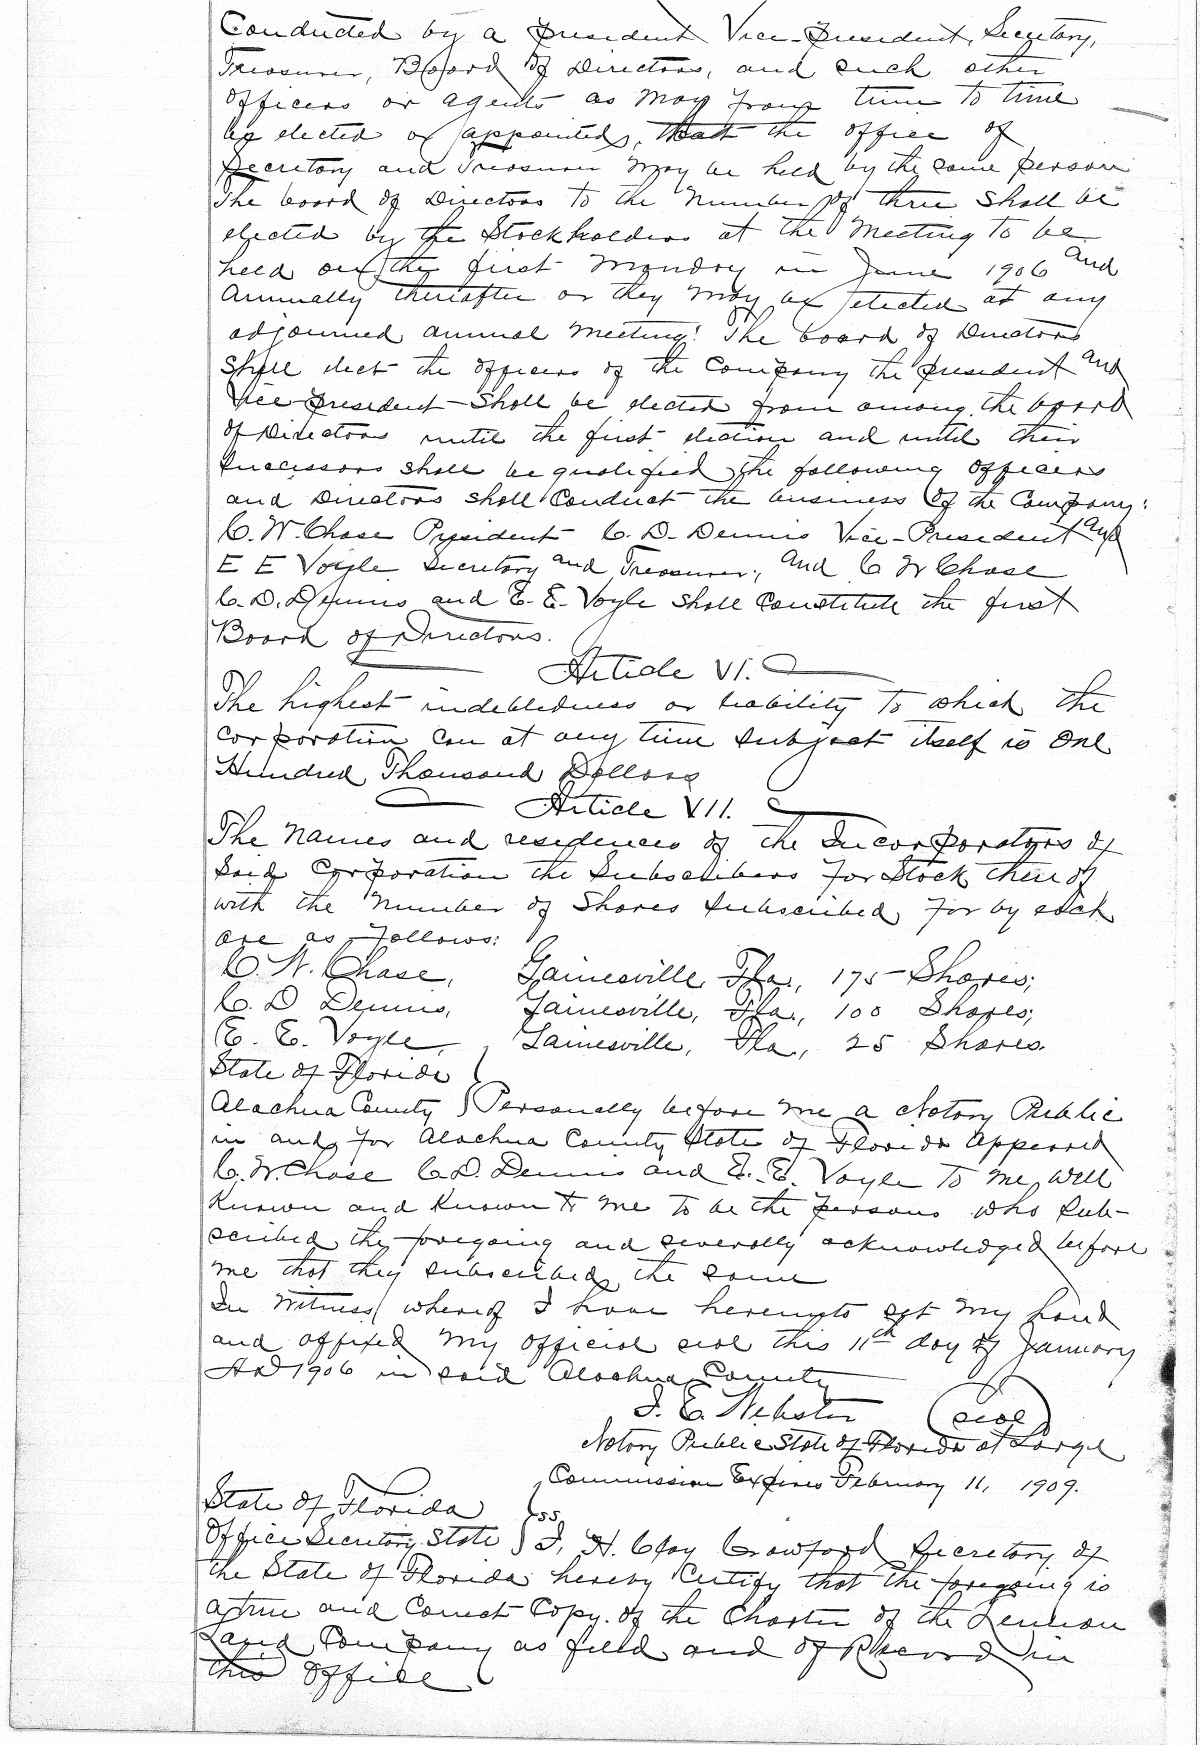 Conducted by a president Vice-president, Secretary,
Treasurer, Board of Directors, and such other
officers or agents as may from time to time
be elected or appointed, that the office of
Secretary and Treasurer may be held by the same person
The board of Directors to the number of three shall be
elected by the Stockholders at the Meeting to be
held on the first Monday in June 1906 and
annually thereafter or they may be elected at any
adjourned annual meeting. The board of Directors
shall elect the officers of the Company the president and
Vice-president shall be elected from among the board
of Directors until the first election and until their
Successors shall be qualified the following officers
and Directors shall conduct the business of the Company:
C. W. Chase President C. D. Dennis Vice-President and
E E Voyle Secretary and Treasurer, and C W Chase
C. D. Dennis and E. E. Voyle shall constitute the first
Board of Directors.
Article VI.
The highest indebtedness or liability to which the
corporation can at any time subject itself is One
Hundred Thousand Dollars
Article VII.
The names and residences of the Incorporators of
Said corporation the Subscribers for Stock thereof
with the number of shares subscribed for by each
are as follows:
C. W. Chase, Gainesville, Fla., 175 Shares;
C. D Dennis, Gainesville, Fla., 100 Shares;
E. E. Voyle, Gainesville, Fla., 25 Shares.
State of Florida
Alachua County Personally before me a Notary Public
in and for Alachua County State of Florida appeared
C. W. Chase C. D. Dennis and E. E. Voyle to me well
Known and Known to me to be the persons who sub-
scribed the foregoing and severally acknowledged before
me that they subscribed the same
In Witness whereof I have hereunto set my hand
and affixed my official seal this 11th day of January
AD 1906 in said Alachua County
J. E. Webster (seal)
Notary Public State of Florida at Large
Commission Expires February 11, 1909.
State of Florida
Office Secretary State } ss I, H. Clay Crawford Secretary of
the State of Florida hereby certify that the foregoing is
a true and correct copy of the Charter of the
Land Company as filed and of Record in
this office